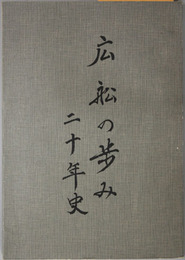 広舩の歩み
二十年史